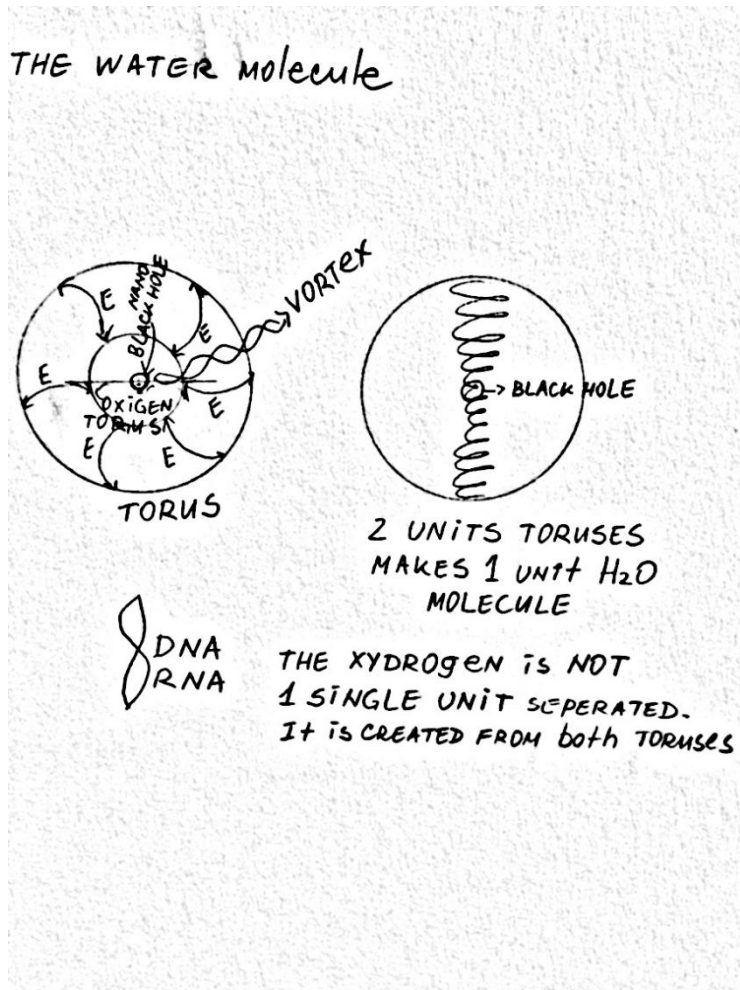 THE WATER Molecule
NANO
BLACK HOLE
VORTEX
E
E
E
E
E
E
OXiGEN
TORUS
TORUS
BLACK HOLE
2 UNiTS TORUSES
MAKES 1 UNit H2O
MOLECULE
DNA
RNA
THE XYDROGEN iS NOT
1 SiNGLE UNIT SEPERATED.
It iS CREATED FROM both TORUSES